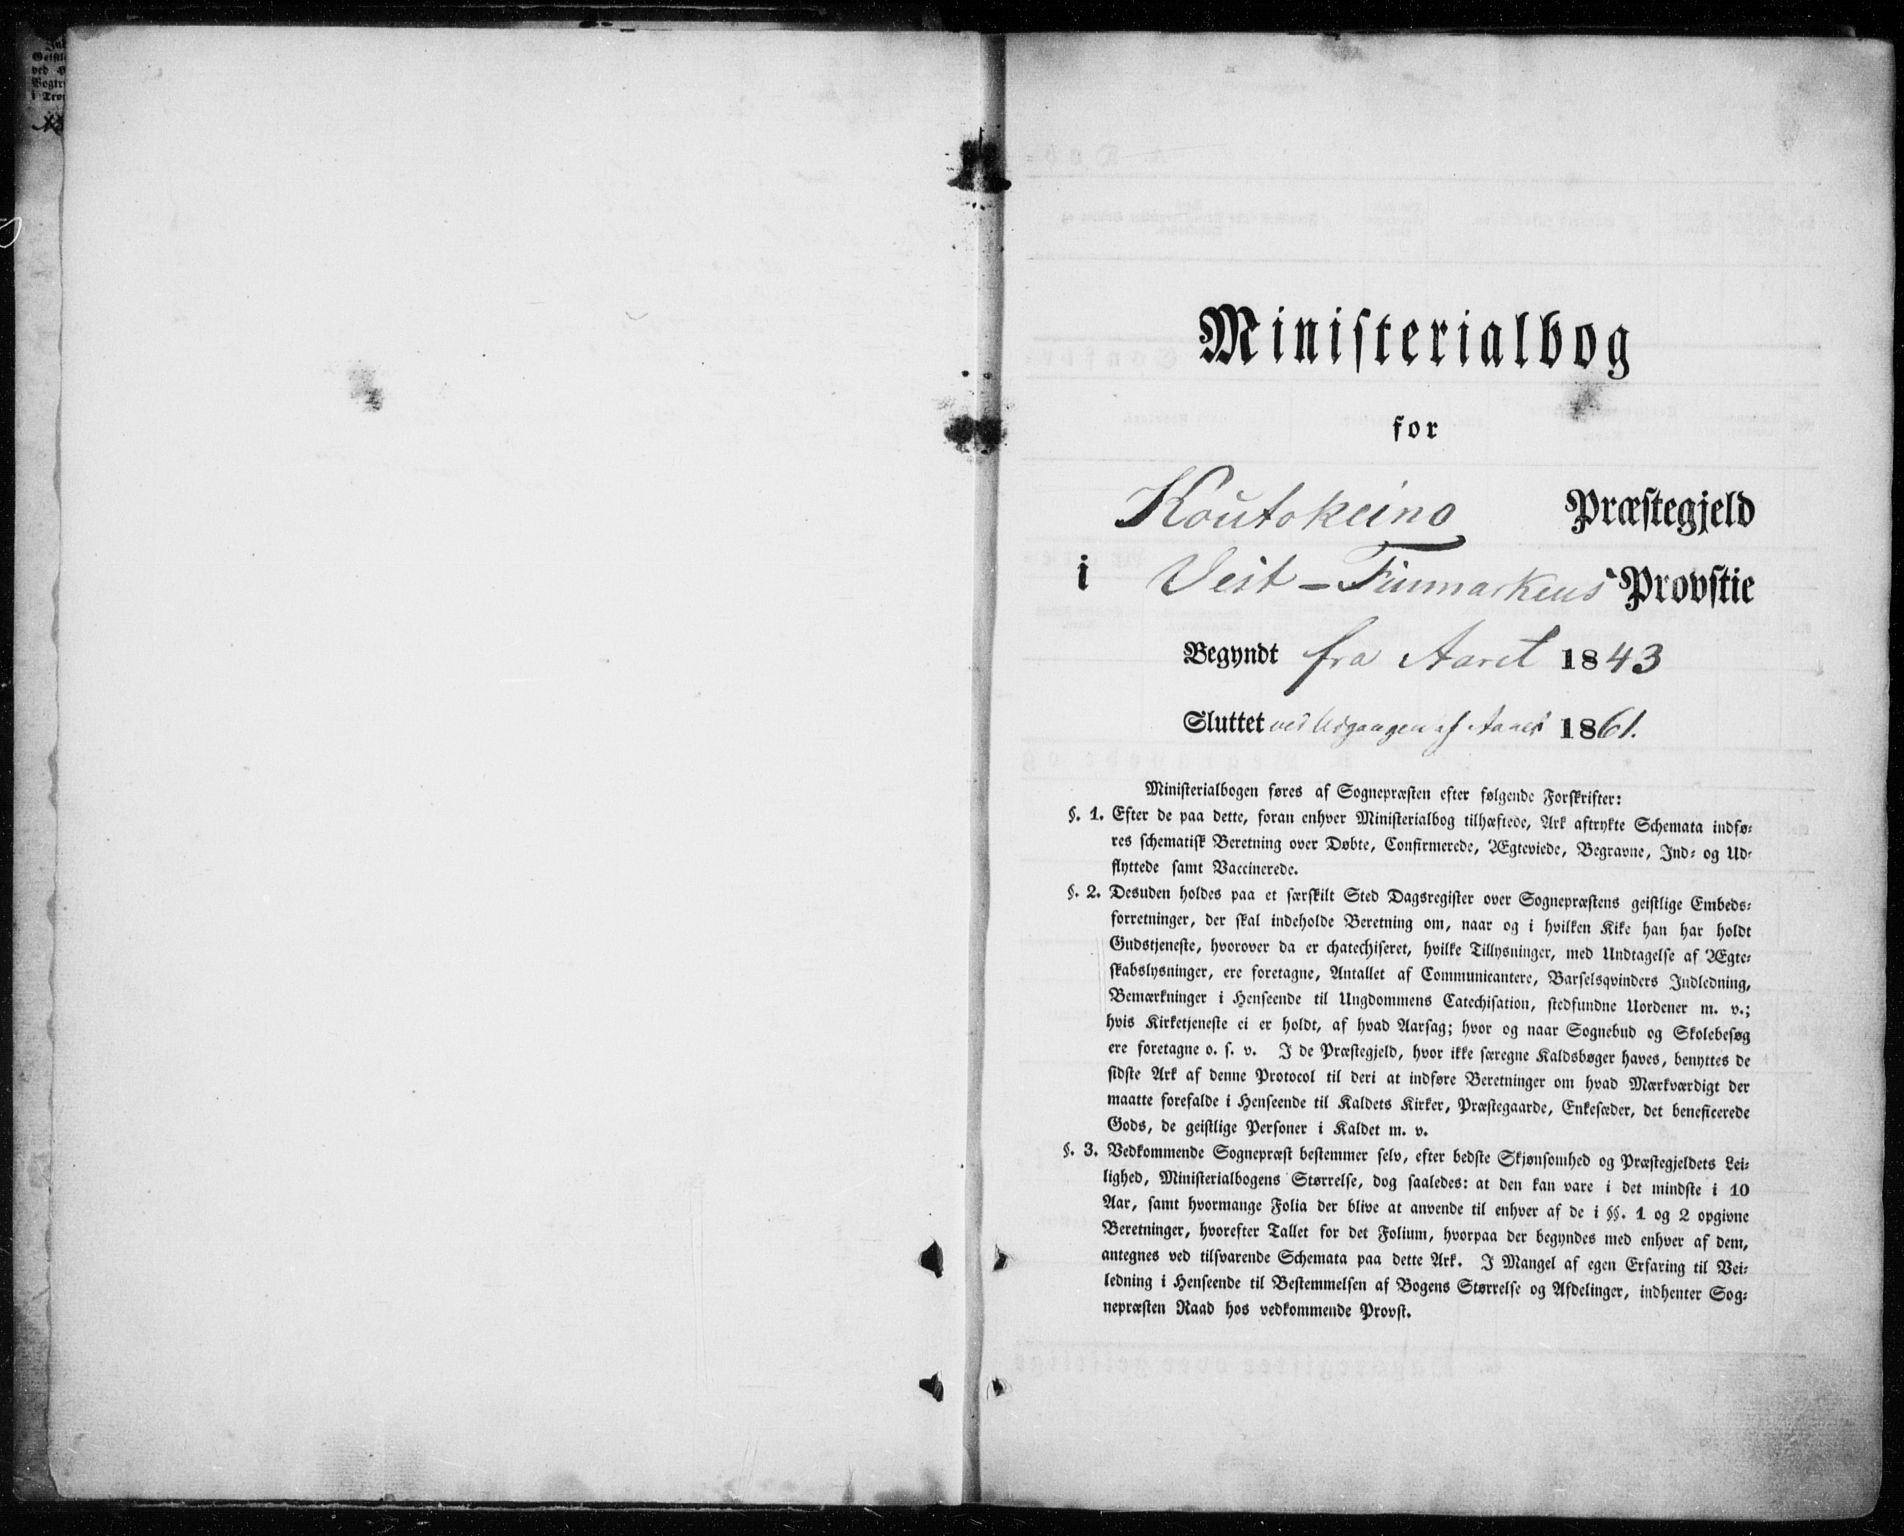 Ministerialbog
for
Koutokeino Præstegjeld
i Vest-Finmarkens Provstie
Begyndt fra Aaret 1843
Sluttet ved Udgangen af Aaret 1861.
Ministerialbogen føres af Sognepræsten efter følgende Forskrifter:
§. 1. Efter de paa dette, foran enhver Ministerialbog tilhæftede, Ark aftrykte Schemata indfø-
res schematisk Beretning over Døbte, Confirmerede, Ægteviede, Begravne, Ind- og Ud-
flyttede samt Vaccinerede.
§. 2. Desuden holdes paa et særskilt Sted Dagsregister over Sognepræstens geistlige Embeds-
forretninger, der skal indeholde Beretning om, naar og i hvilken Kike han har holdt
Gudstjeneste, hvorover da er chatechiseret, hvilke Tillysninger, med Undtagelse af Ægte-
skabslysninger, ere foretagne, Antallet af Communicantere, Barselsqvinders Indledning,
Bemærkninger i Henseende til Ungdommens Catechisation, stedfundne Uordener m. v.;
hvis Kirketjeneste ei er holdt, af hvad Aarsag; hvor og naar Sognebud og Skolebesøg
ere foretagne o. s. v. I de Præstegjeld, hvor ikke særegne Kaldsbøger haves, benyttes de
sidste Ark af denne Protocol til deri at indføre Beretninger om hvad Mærkværdigt der
maatte forefalde i Henseende til Kaldets Kirker, Præstegaarde, Enkesæder, det beneficerede
Gods, de geistlige Personer i Kaldet m. v.
§. 3. Vedkommende Sognepræst bestemmer selv, efter bedste Skjønsomhed og Præstegjeldets Lei-
lighed, Ministerialbogens Størrelse, dog saaledes: at den kan vare i det mindste i 10
Aar, samt hvormange Folia der blive at anvende til enhver af de i §§. 1 og 2 opgivne
Beretninger, hvorefter Tallet for det Folium, hvorpaa der begyndes med enhver af dem,
antegnes ved tilsvarende Schemata paa dette Ark. I Mangel af egen Erfaring til Vei-
ledning i Henseende til Bestemmelsen af Bogens Størrelse og Afdelinger, indhenter Sog-
nepræsten Raad hos vedkommende Provst.